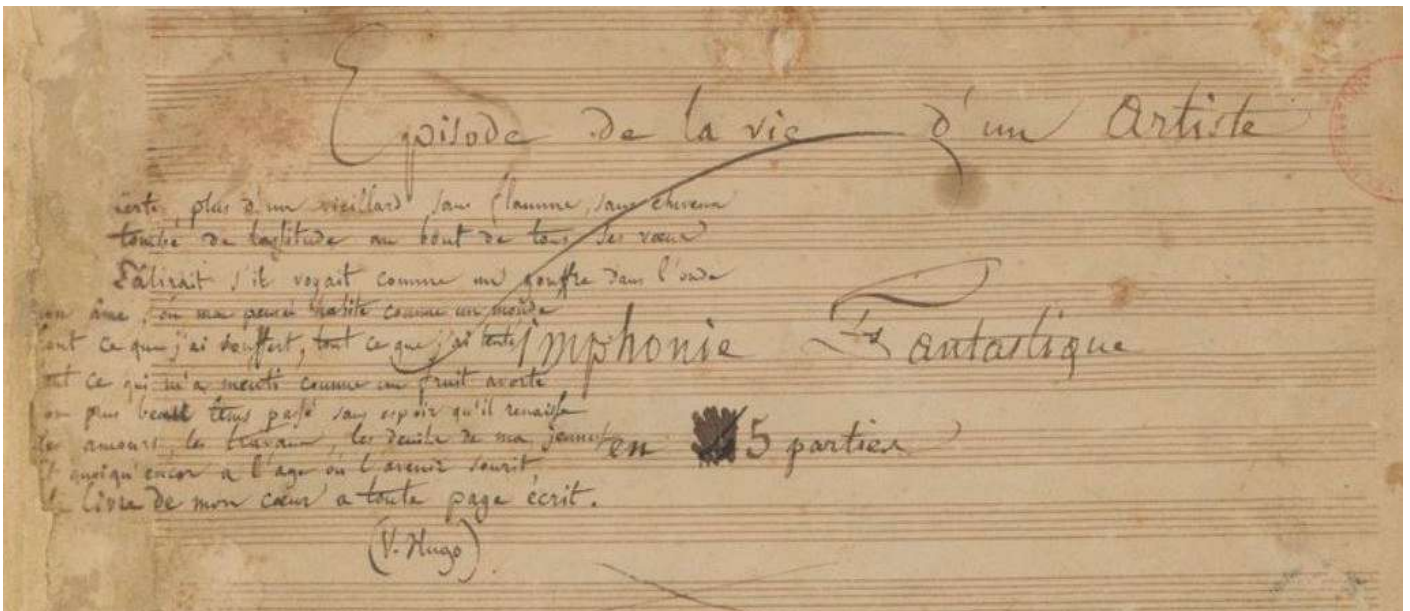 Episode de la vie d'un Artiste
certe, plus d'un vieillard sans flamme, sans cheveux
tombé de lassitude au bout de tous ses vœux
Pâlirait s'il voyait comme un gouffre dans l'onde
on âme, où ma pensée habite comme un monde
tout ce que j'ai souffert, tout ce que j'ai tenté
out ce qui m'a menti comme un fruit avorté
on plus beau tems passé sans espoir qu'il renaisse
les amours, les travaux, les deuils de ma jeunesse
t quoiqu'encor a l'age où l'avenir sourit
le livre de mon cœur a toute page écrit.
(V. Hugo)
Simphonie Fantastique
en 5 parties